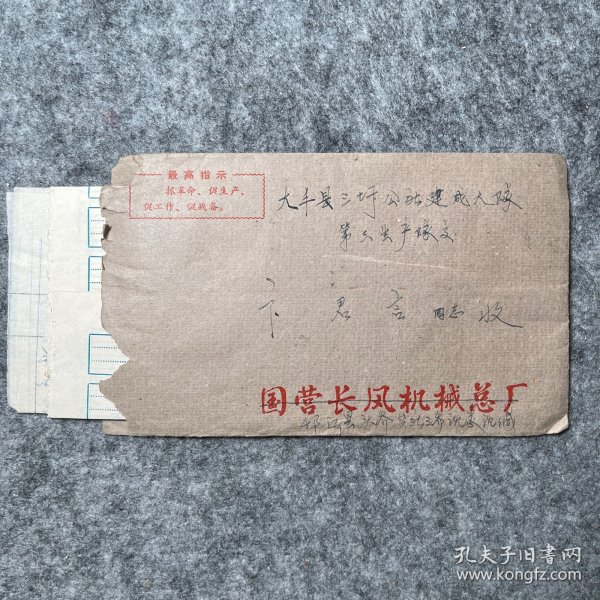 最高指示
抓革命、促生产、
促工作、促战备。
大丰县三圩公社建成大队
第六生产队交
卞君言同志收
国营长风机械总厂
孔夫子旧书网
www.kongfz.com